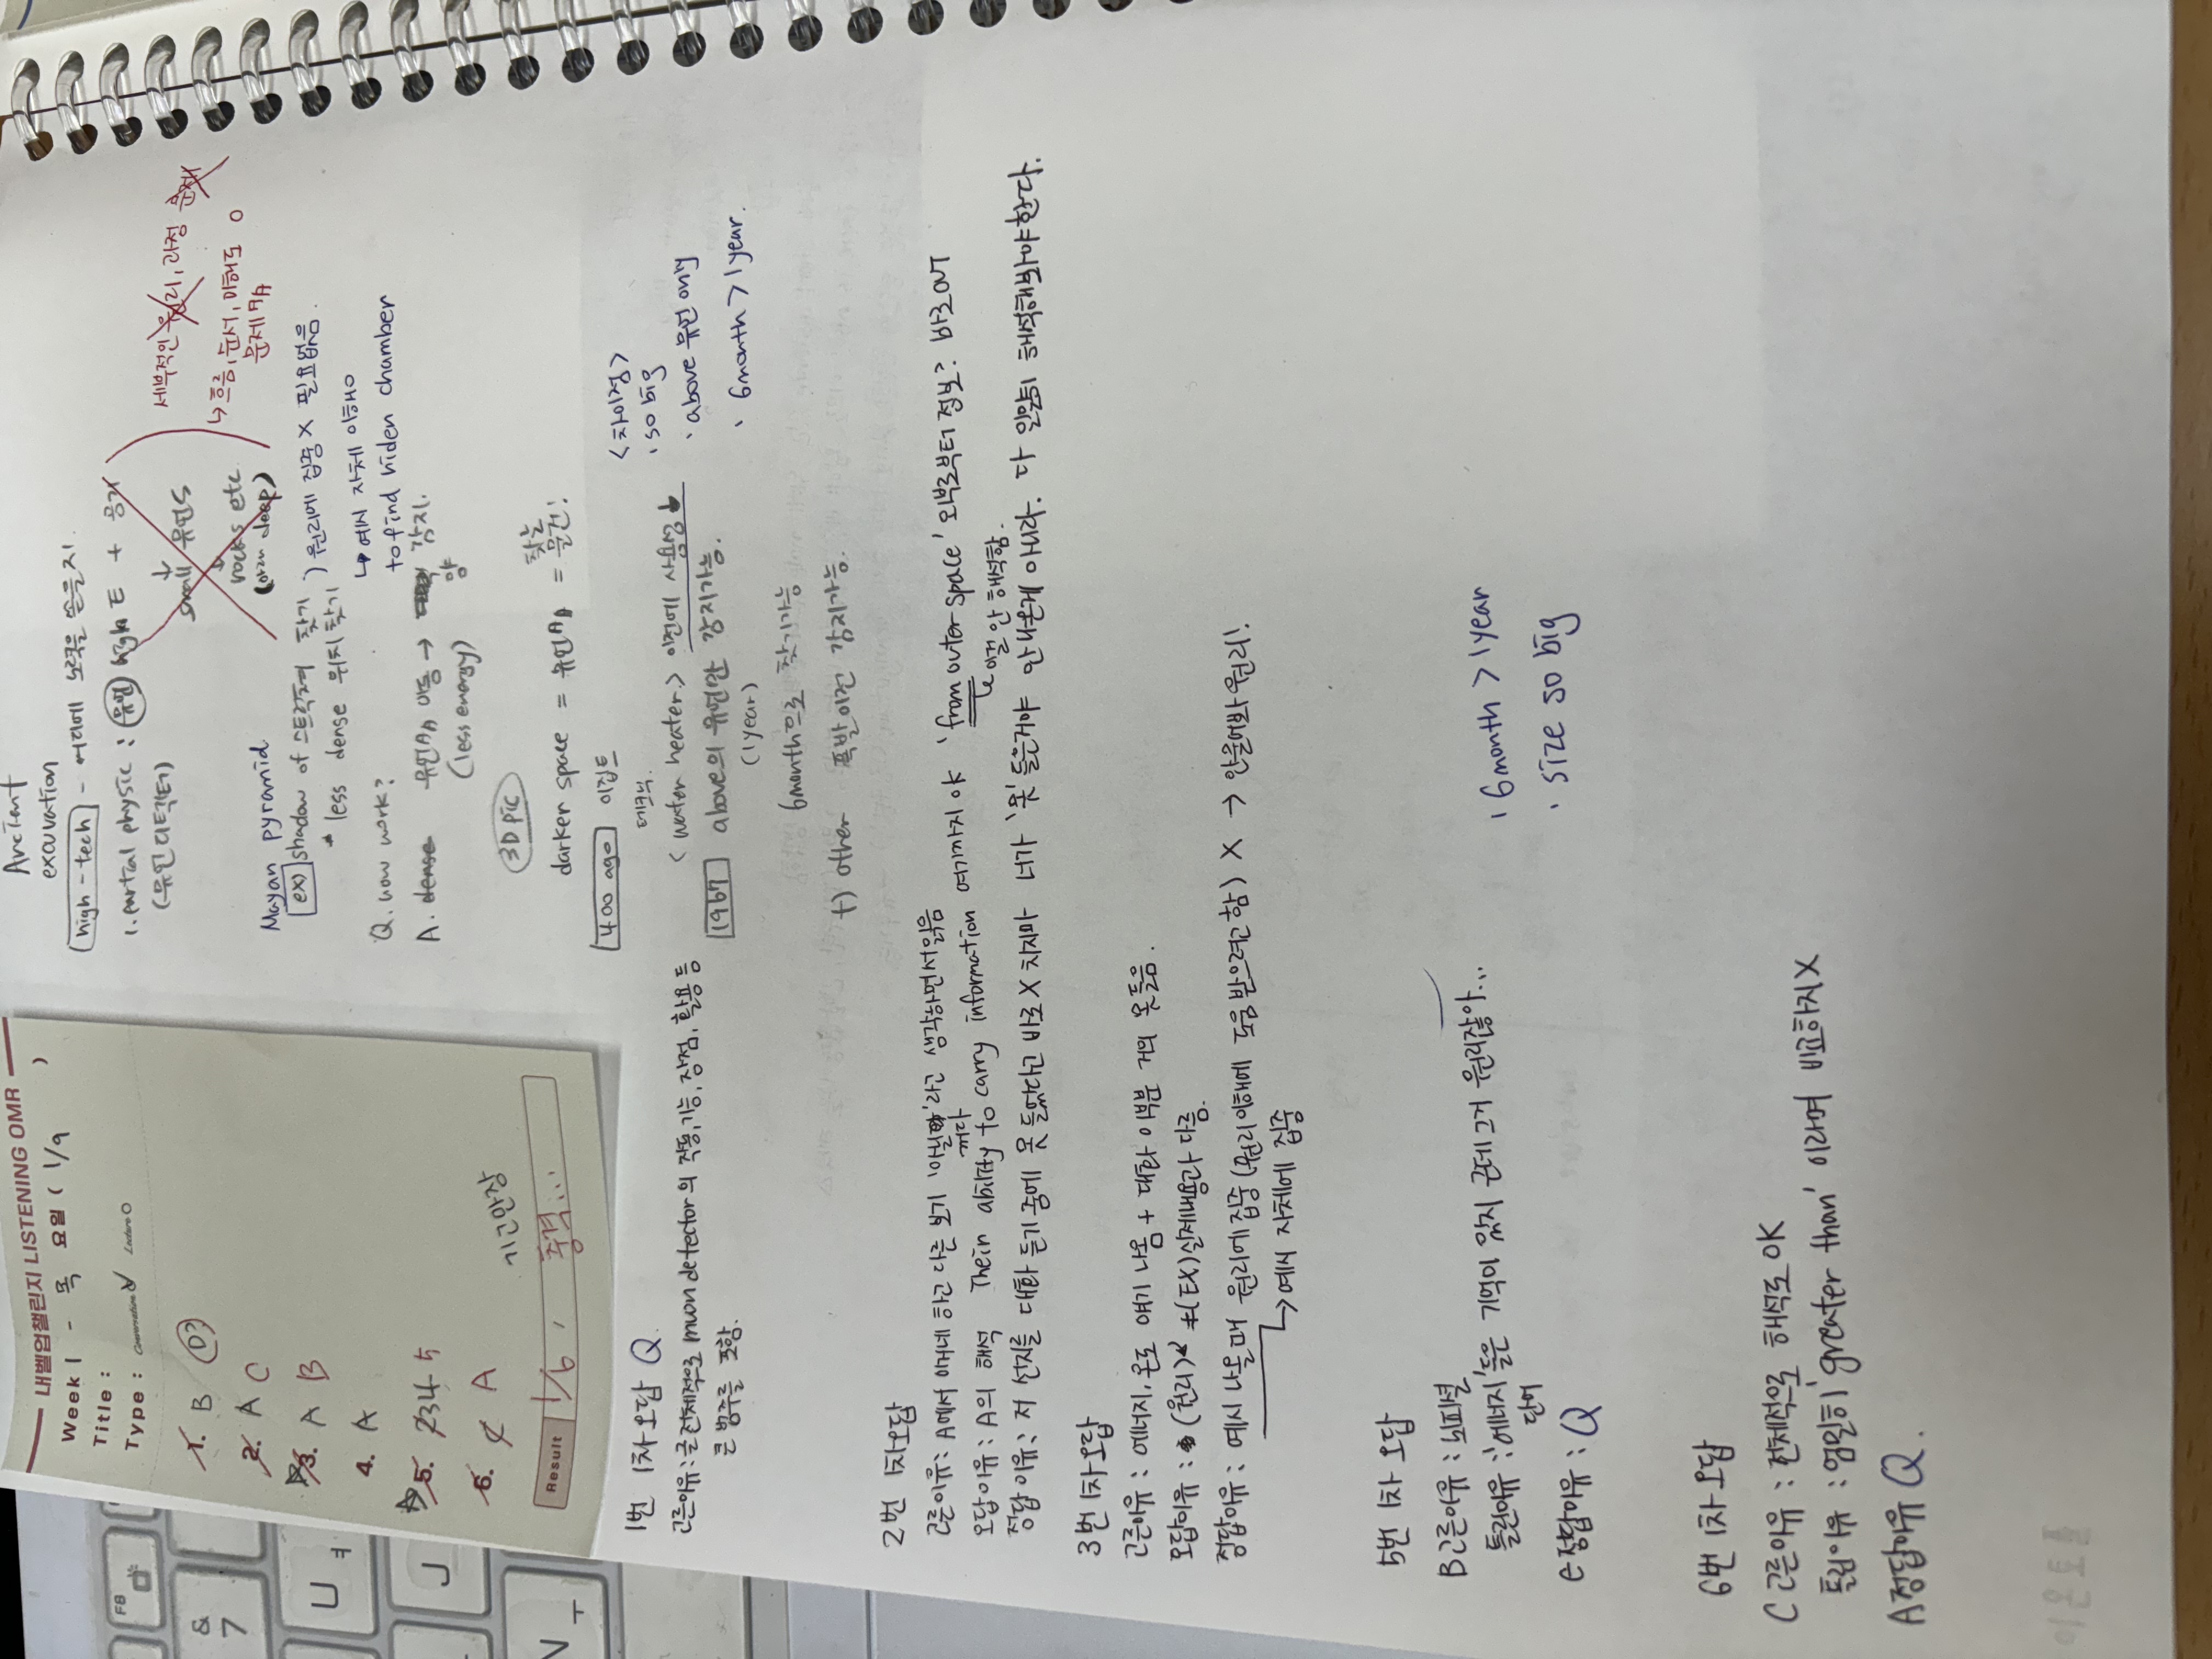 내벨업챌린지 LISTENING OMR
Week 1 - 목 요일 ( 1/9 )
Title :
Type : Conversation Lecture
1. B D
2. A C
3. A B
4. A
5. 234 5
6. C A
Result 1/6, 충격...
Ancient
excavation
high-tech - 어디에 노력을 쏟을지.
1. partal physic : 유먼 high E + 공기
(유먼 디텍터)
small 유먼S
rocks etc
(om deep)
세부적인 원리, 과정 문제
↳흐름, 순서, 이해도 O
문제AA
Mayan pyramid
ex) shadow of 스트럭쳐 찾기 ) 원리에 집중 X 필요없음.
less dense 위치찾기
↳ 예시 자체 이해O
to find hiden chamber
Q. how work?
A. dense 유먼AA 이동 → 양 감지.
(less energy)
3D pic
darker space = 유먼AA = 찾는 물건!
400 ago 이집트
테크닉.
< water heater> 이전에 사용성↓
1967 above의 유먼만 감지가능.
(1year)
6month으로 찾기가능
+) other 폭발이전 감지가능.
<차이점>
· so big
· above 유먼 only
· 6month > 1year.
1번 1차오답 Q
고른이유: 글전체적으로 muon detector의 작동, 기능, 장점, 활용 등
큰 범주를 포함.
2번 1차오답
고른이유: A에서 애매네 하고 다른 보기 '아닐꺼다'라고 생각하면서읽음
오답이유: A의 해석 Thein ability to carry information 여기까지야 'from outer-space' 외부로부터 정보? 바로 out
이걸 안 해석함.
정답이유: 저 선지를 대화 듣기 중에 못 들었다고 바로 X 치지마 너가 '못' 들은거야 안 나온게 아니라. 다 일일히 해석해봐야한다.
3번 1차오답
고른이유: 에너지, 온도 얘기 나옴 + 대화 이부분 거의 못들음.
오답이유: (원리) ≠ (EX)실제내용과 다름.
정답이유: 예시 나올때 원리에 집중 (원리이해에 도움받으려고 함) X → 안물어봐 원리!
→예시 자체에 집중
5번 1차오답
B고른이유: 뇌피셜
틀린이유: '에너지'들은 기억이 있지 근데 그거 원리잖아...
e 정답이유: Q
· 6month > 1year
· size so big
6번 1차오답
C고른이유: 전체적으로 해석도 OK
틀린이유: 엄연히 'greater than' 이라며 비교하지X
A정답이유 Q.
F8
&
7
U
ㅕ
J
N
ㅜ